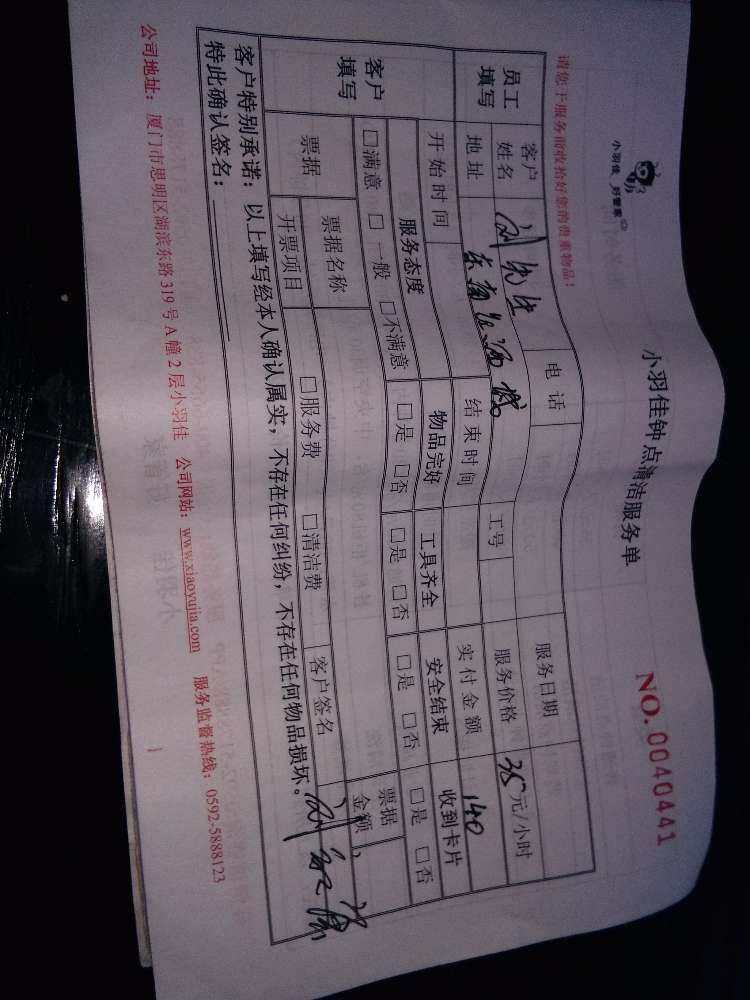 小羽佳 好管家
小羽佳钟点清洁服务单
NO. 0040441
请您于服务前收拾好您的贵重物品！
员工填写 客户姓名 刘先生 电话 服务日期
地址 东南 城 工号 服务价格 35元/小时
开始时间 结束时间 实付金额 140
客户填写 服务态度 物品完好 工具齐全 安全结束 收到卡片
□满意 □一般 □不满意 □是 □否 □是 □否 □是 □否 □是 □否
票据 票据名称 □服务费 □清洁费 票据金额
开票项目 客户签名 刘
客户特别承诺：以上填写经本人确认属实，不存在任何纠纷，不存在任何物品损坏。
特此确认签名：
公司地址：厦门市思明区湖滨东路319号A幢2层小羽佳 公司网站：www.xiaoyujia.com 服务监督热线：0592-5888123